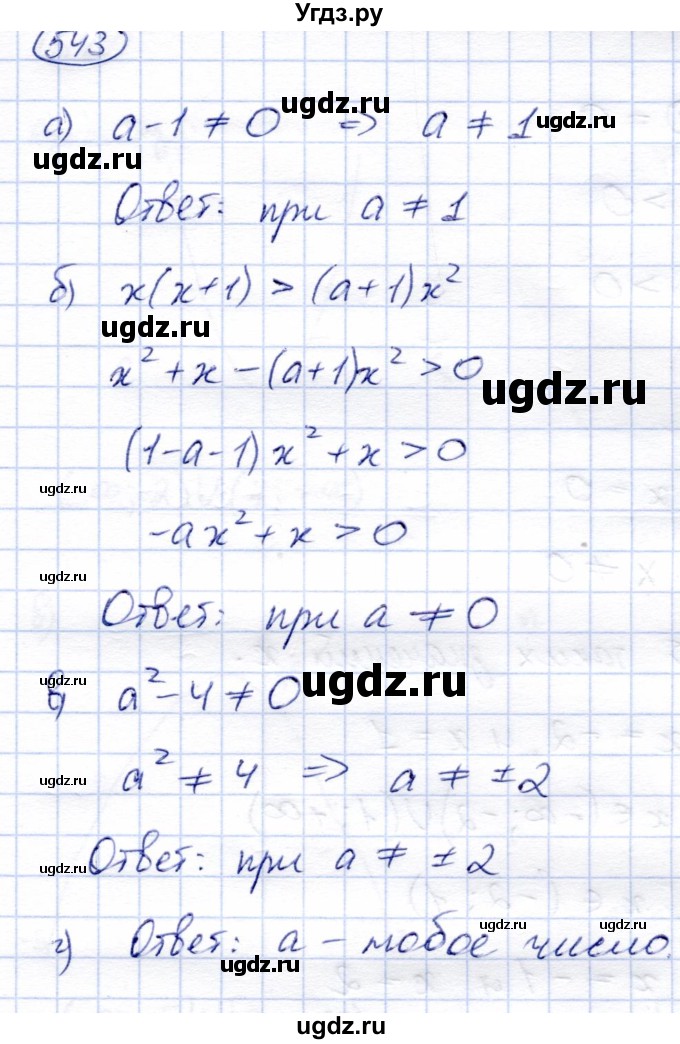 Угдз.ру
543
ugdz.ru
а) a - 1 ≠ 0 ⇒ a ≠ 1 ugdz.ru
ugdz.ru
Ответ: при a ≠ 1
б) x(x+1) > (a+1)x²
ugdz.ru
x² + x - (a+1)x² > 0
ugdz.ru
(1-a-1)x² + x > 0
ugdz.ru
ugdz.ru
-ax² + x > 0
ugdz.ru
Ответ: при a ≠ 0
ugdz.ru
в) a² - 4 ≠ 0
ugdz.ru
a² ≠ 4 ⇒ a ≠ ±2
ugdz.ru
Ответ: при a ≠ ±2
ugdz.ru
ugdz.ru ugdz.ru
г) Ответ: a - любое число.
ugdz.ru
ugdz.ru